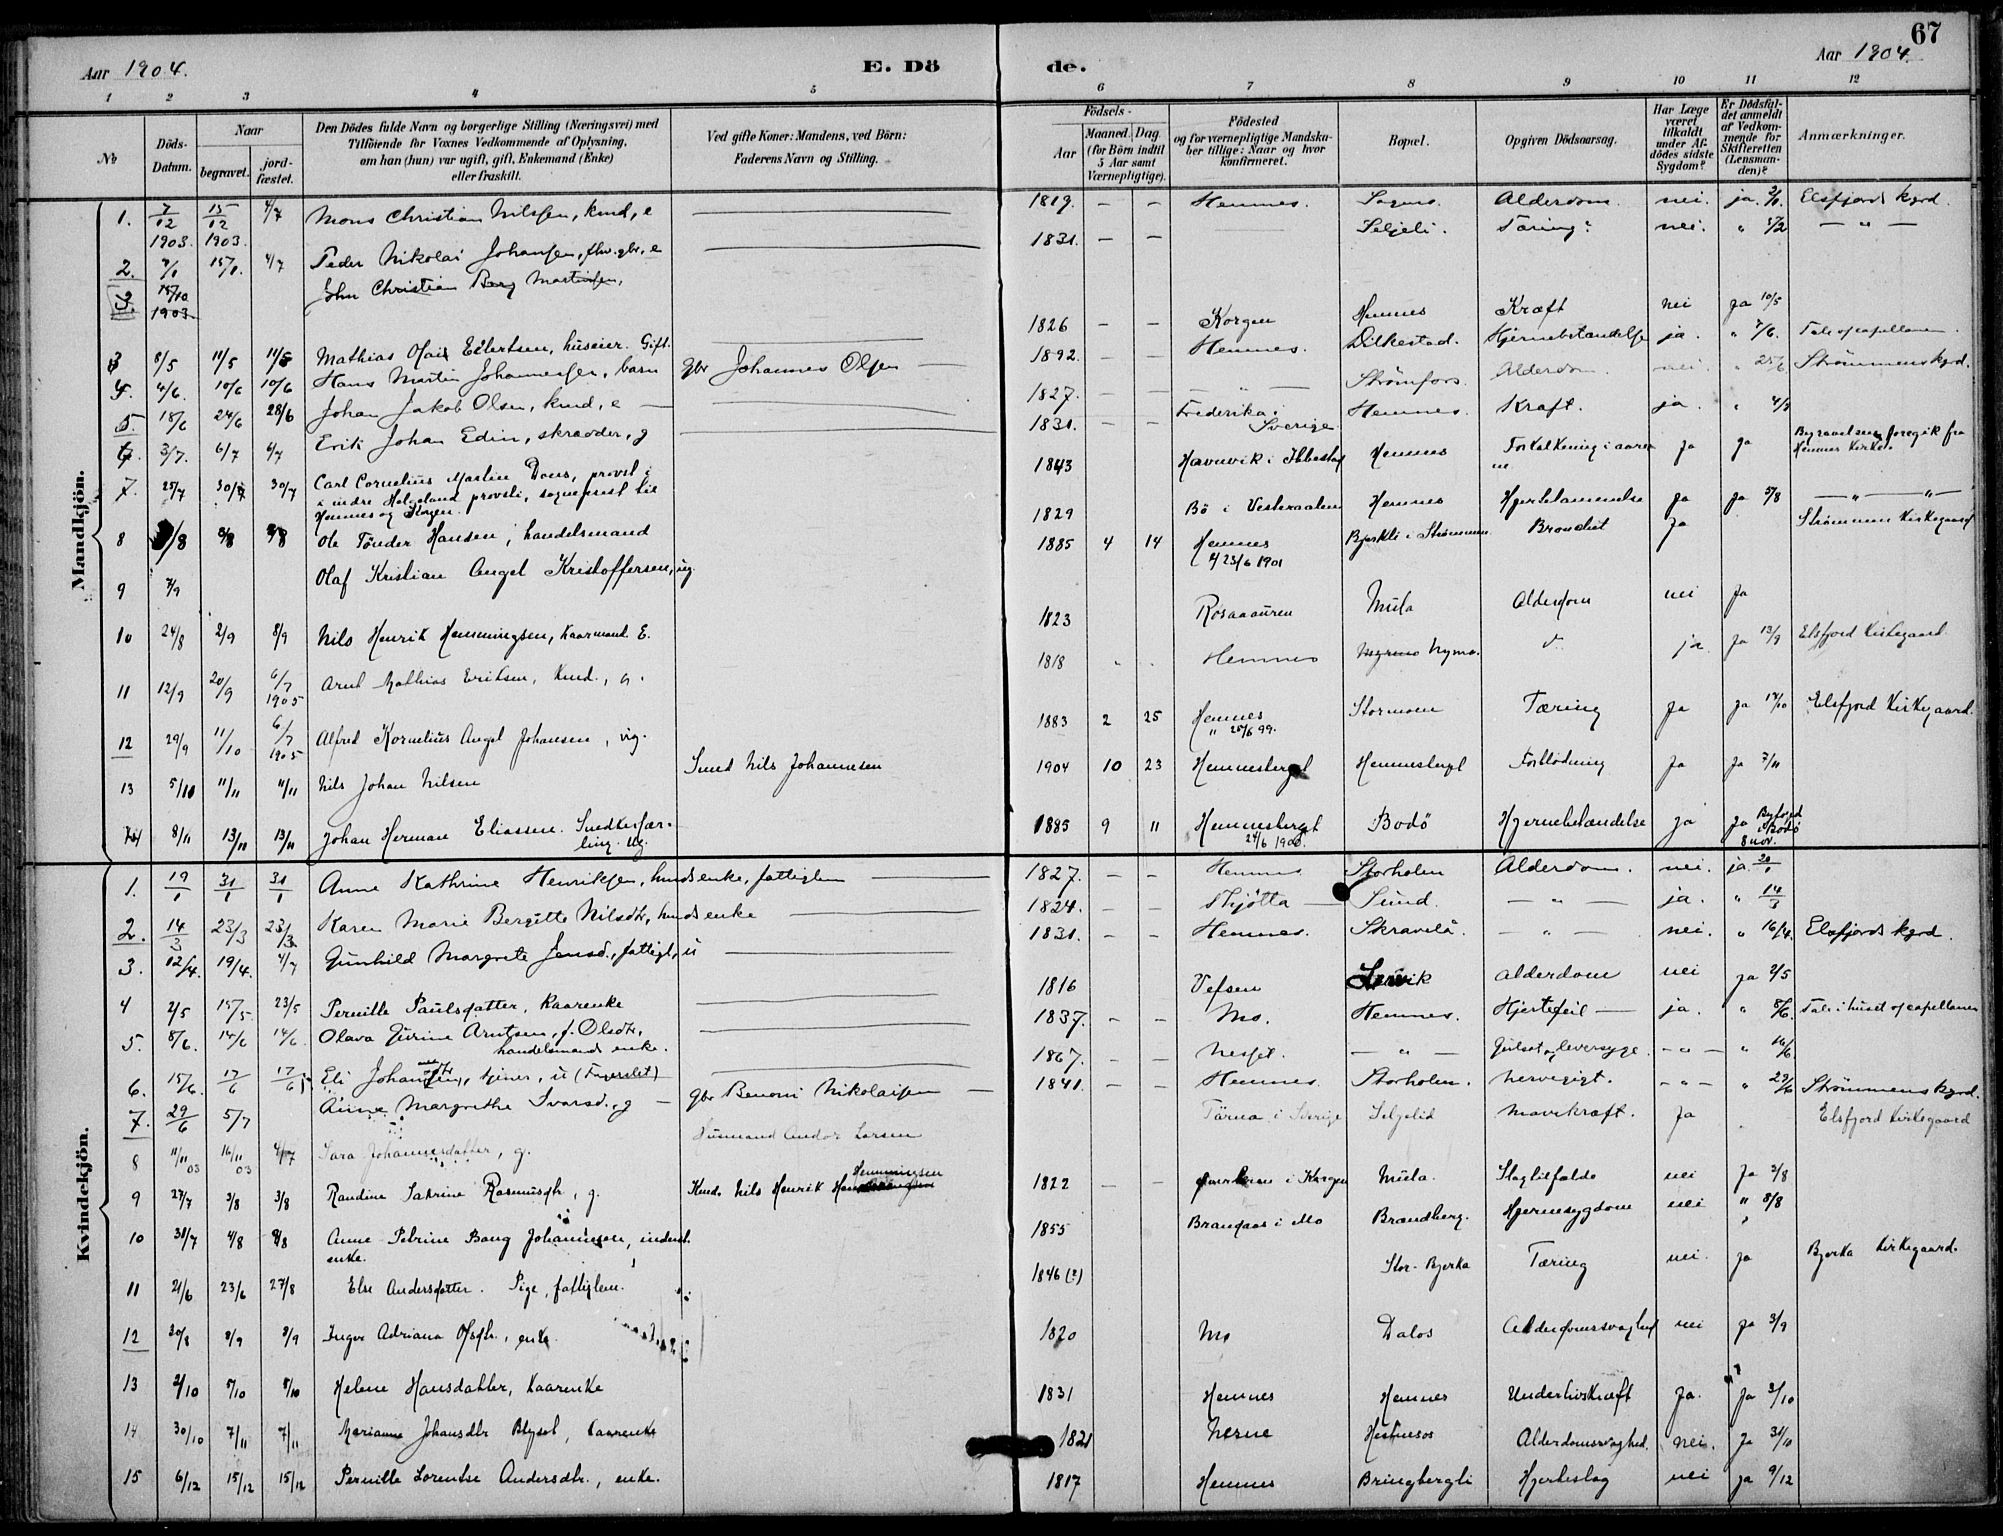 67
Aar 1904.
E. Dö
de.
Aar 1904.
1 2 3 4 5 6 7 8 9 10 11 12
No
Döds-Datum.
Naar
begravet.
jord-fæstet.
Den Dödes fulde Navn og borgerlige Stilling (Næringsvei) med
Tilföiende for Voxnes Vedkommende af Oplysning,
om han (hun) var ugift, gift, Enkemand (Enke)
eller fraskilt.
Ved gifte Koner: Mandens, ved Börn:
Faderens Navn og Stilling.
Födsels-
Aar
Maaned. Dag.
(for Börn indtil
5 Aar samt
Værnepligtige).
Födested
og for værnepligtige Mandska-
ber tillige: Naar og hvor
konfirmeret.
Bopæl.
Opgiven Dödsaarsag.
Har Læge
været
tilkaldt
under Af-
dödes sidste
Sygdom?
Er Dödsfal-
det anmeldt
af Vedkom-
mende for
Skifteretten
(Lensman-
den)?
Anmærkninger.
Mandkjön.
1. 7/12 1903. 15/12 1903. 4/7 Mons Christian Nilssen, kmd, e 1819. — — Hemnes. Alderdom. nei. ja. Elsfjords kgrd.
2. 15/1. 4/7 Peder Nikolai Johansen, e 1831. — — Seljeli. Tæring? nei. " 5/2 — " —
3. 15/10 1903 John Christian Berg Martinsen,
3 8/5 11/5 11/5 Mathias Olai Eilertsen, huseier. Gift. 1826 — — Korgen Hemnes Kræft nei ja 10/5
4. 4/6. 10/6 10/6 Hans Martin Johannessen, barn gbr Johannes Olsen 1892. — — Hemnes. Hjernebetændelse ja. " 7/6.
5. 18/6 24/6 28/6 Johan Jakob Olsen, kmd, e 1827. — — — " — Strømfors. Alderdom. nei. " 25/6 Strømmens kgrd.
6. 3/7. 6/7 6/7 Erik Johan Edin, skrædder, g 1831. — — Frederika i Sverige Hemnes. Kræft. ja. "
7. 25/7 30/7 30/7 Carl Cornelius Marlin Dons, provst i
i indre Helgeland provsti, sogneprest til
Hemnes og Korgen. 1843 Havnvik i Ibbestad Hemnes Forkalkning i aarer
ne ja ja Begravelsen foregik fra
Hemnes Kirke.
8 /8 8/8 8/8 Ole Tønder Hansen, handelsmand 1829 Bø i Vesteraalen Hemnes Hjertelammelse ja ja 5/8 — " — " —
9 7/9 Olaf Kristian Angel Kristoffersen, ug. 1885 4 14 Hemnes
23/6 1901 Bjerkli i Strømmen Bronchit ja Strømmen Kirkegaard
10 24/8 2/9 8/9 Nils Henrik Hemmingsen, Kaarmand. E. 1823 Røsaaauren Mula Alderdom nei ja
11 12/9 20/9 6/7 1905 Arnt Mathias Eriksen, Kmd., 1818 " " Hemnes ja ja 13/9 Elsfjord Kirkegaard.
12 29/9 11/10 6/7 1905 Alfred Kornelius Angel Johansen, ug. 1883 2 25 Hemnes
" 25/6 99. Stormoen Tæring ja ja Elsfjord Kirkegaard.
13 5/11 11/11 11/11 Nils Johan Nilsen Smed Nils Johannesen 1904 10 23 Hemnesberget Hemnesberget Forblødning ja ja 7/11
14 8/11 13/11 13/11 Johan Herman Eliassen. Snedkerlær-
ling. Ug. 1885 9 11 Hemnesberget
24/6 1900. Bodø Hjernebetændelse ja ja Byfoged
i Bodø
8 nov.
Kvindekjön.
1. 19/1 31/1 31/1 Anne Kathrine Henriksen, husdsenke, fattiglem 1827. — — Hemnes Storholm Alderdom. nei. ja.
2. 14/3 23/3 23/3 Karen Marie Bergitte Nilsdtr, husdsenke 1824. — — Thjøtta Sund. — " — ja. " 14/3
3. 12/4. 19/4. 4/7 Gunhild Margrete Jensd., fattigl., u 1831. — — Hemnes. Skravelå — " — nei. " 16/4. Elsfjords kgrd.
4 2/5 15/5. 23/5 Pernille Paulsdatter, Kaarenke 1816 Vefsen Alderdom nei ja 2/5
5. 8/6. 14/6 14/6 Olava Arntsen, f. Olsdtr,
handelsmands enke. 1837. — — Mo. Hemnes. Hjertefeil ja. " 8/6. Tale i huset af capellanen
6. 15/6. 17/6 17/6 Eli Johansen, tjener, u 1867. — — Nesset. — " — Gulsot og leversyge. — " — " 16/6
7. 29/6 5/7 Anne Margrethe Ivarsd., g gbr Benoni Nikolaisen 1841. — — Hemnes. Storholm. Nervegigt. — " — " 29/6 Strømmens kgrd.
8 11/11 03 16/11 03 4/7 Sara Johannesdatter, g. Husmand Andor Larsen Tärna i Sverige Seljelid Mavekræft. ja " Elsfjord Kirkegaard
9 27/7 3/8 3/8 Randine Katrine Rasmusdtr, g. Kmd. Nils Henrik Hemmingsen 1822 — — i Korgen Mula. Slagtilfælde nei ja 3/8
10 31/7 4/8 8/8 Anne Petrine Bang Johannesen, inderst.
enke. 1855 Brandaas i Mo Brændberg. Hjernesygdom nei " 8/8
11 21/6 23/6 27/8 Else Andersdatter. Pige, fattiglem. 1846 (?) Stor-Bjerka Tæring nei. ja Bjerka Kirkegaard.
12 30/8 8/9 8/9 Inger Adriana Olsdtr., enke 1820 Mo Dalos Alderdomsvaghed nei ja 3/9
13 2/10 5/10 8/10 Helene Hansdatter, Kaarenke 1831 Hemnes Hemnes Underlivskræft ja. ja 3/10
14 30/10 7/11 7/11 Marianne Johansdtr Blysel, Kaarenke 1821 Nesne Hestnesos Alderdomssvaghed. nei. ja 31/10
15 6/12 15/12 15/12 Pernille Lorentse Andersdtr., enke. 1817 Hemnes Bringbergli Hjerteslag nei ja 9/12